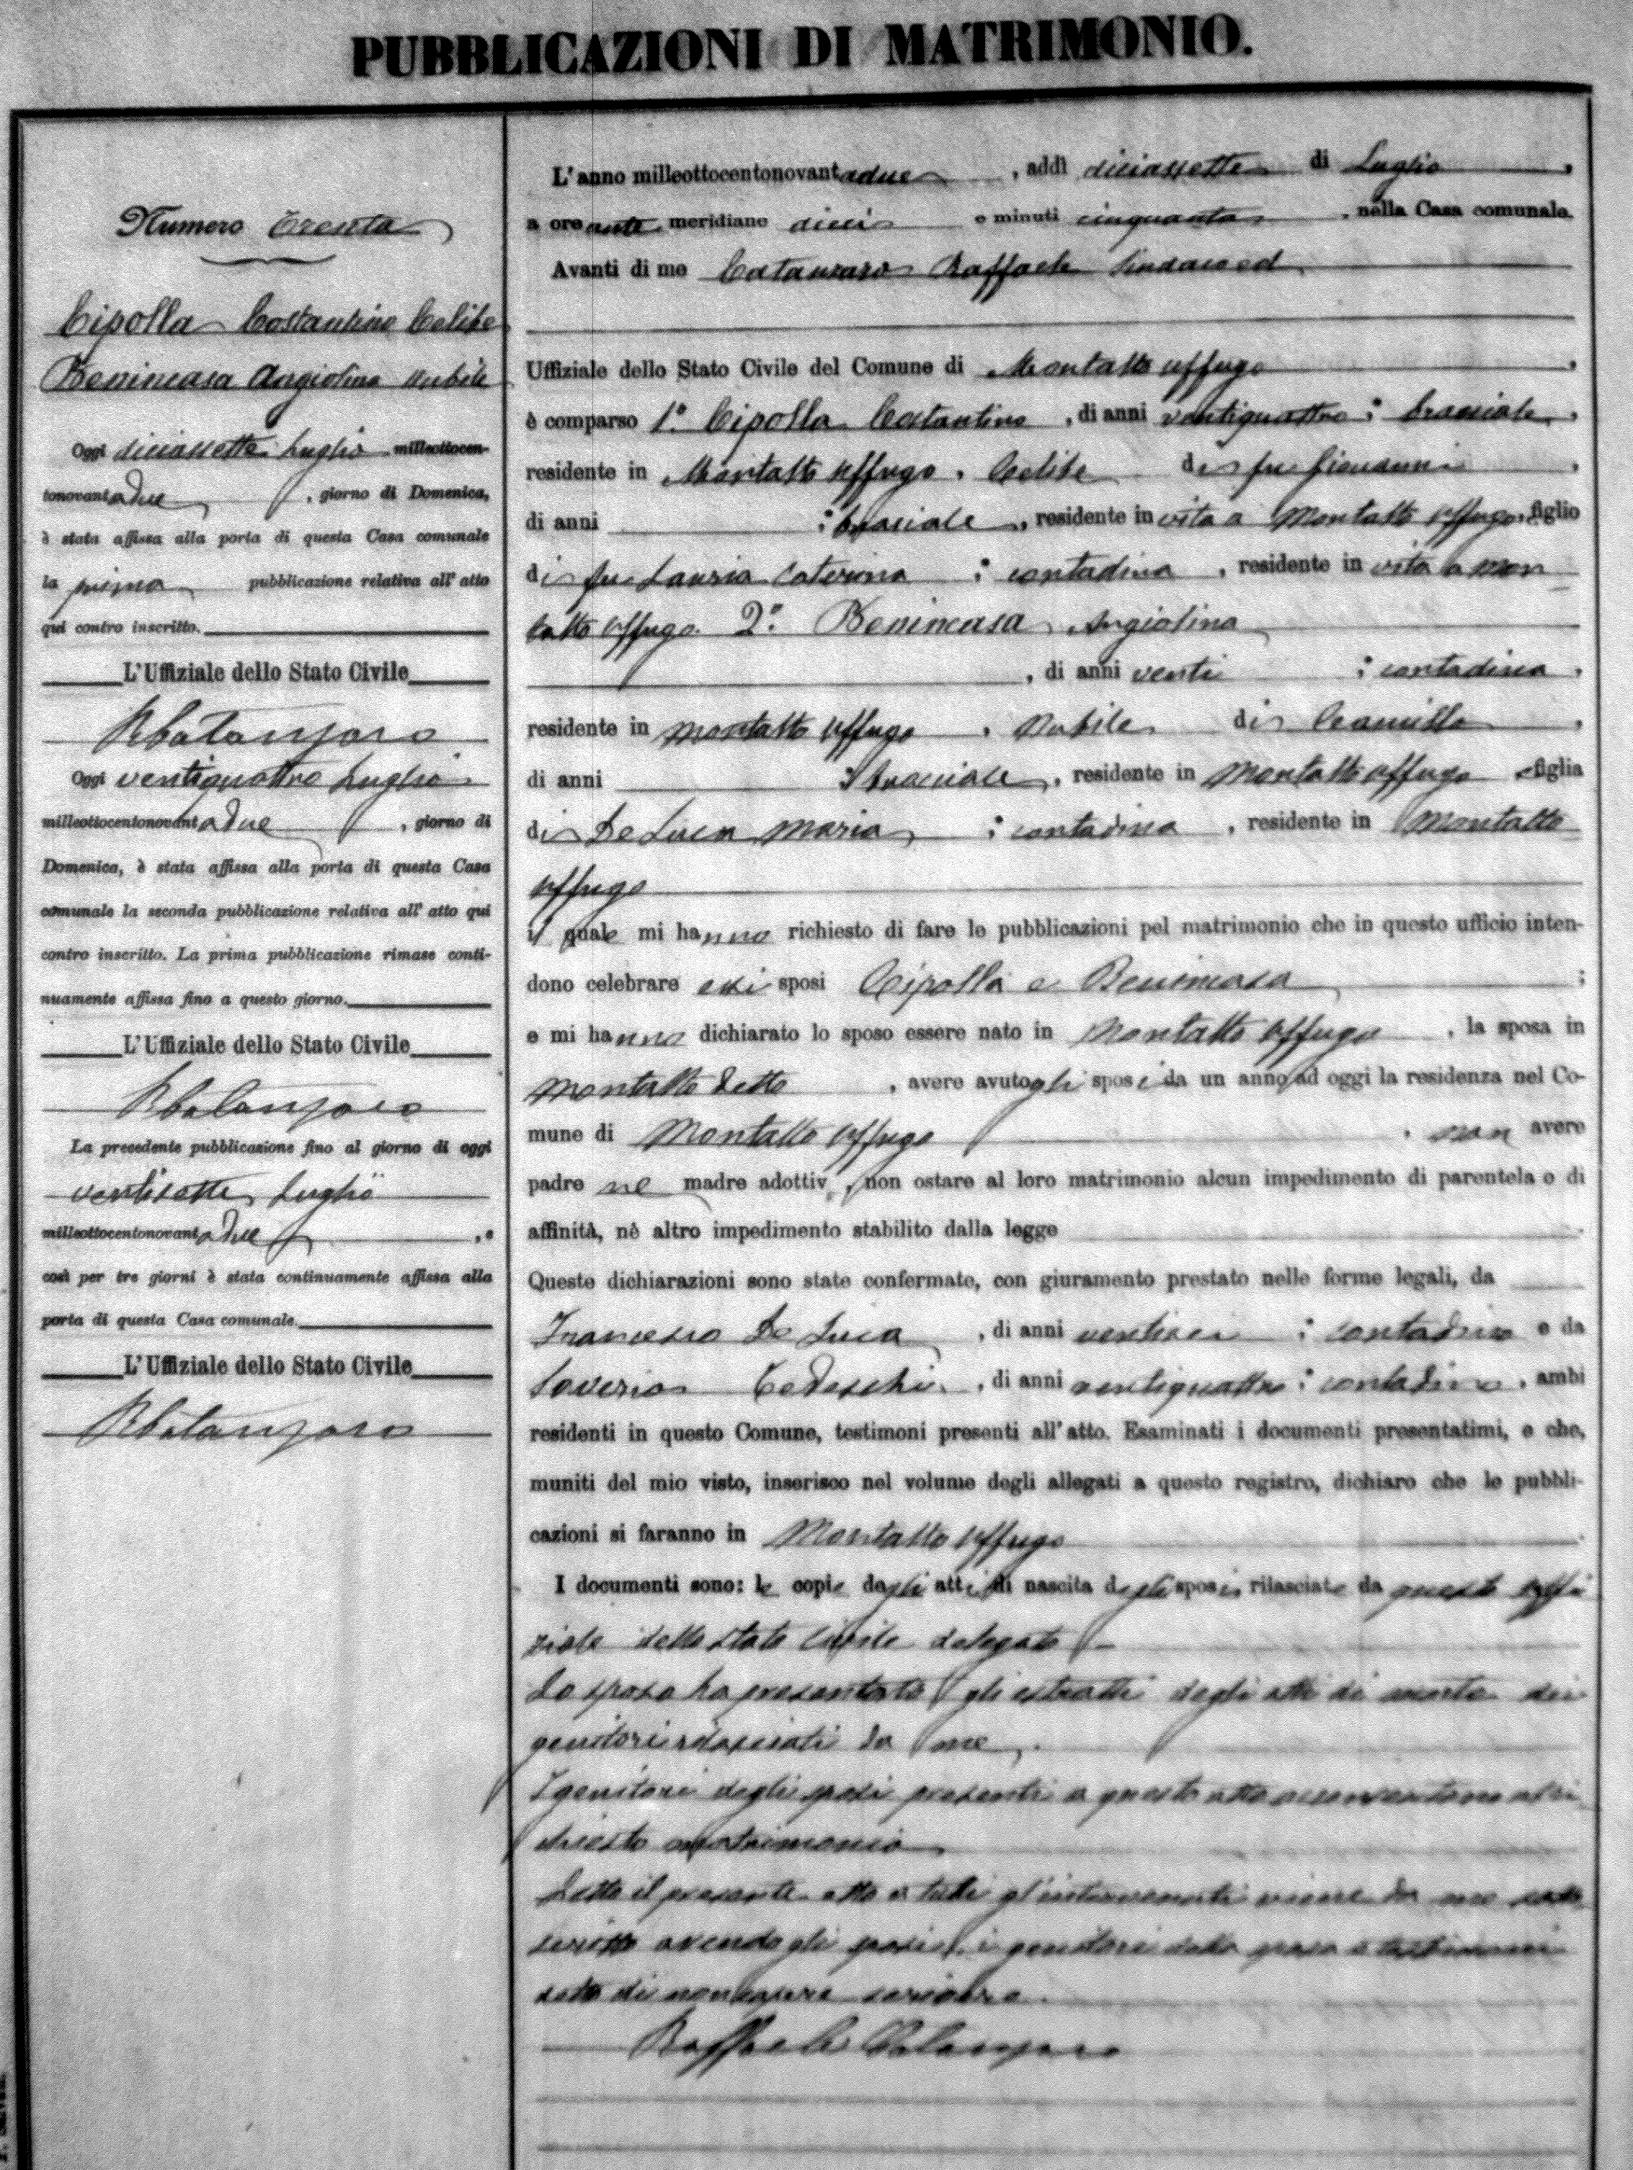 PUBBLICAZIONI DI MATRIMONIO.
Numero Trenta
Cipolla Costantino Celibe
Benincasa Angiolina nubile
Oggi diciassette Luglio milleottocen-
tonovantadue, giorno di Domenica,
è stata affissa alla porta di questa Casa comunale
la prima pubblicazione relativa all'atto
qui contro inscritto.
L'Uffiziale dello Stato Civile
RCatanzaro
Oggi ventiquattro Luglio
milleottocentonovantadue, giorno di
Domenica, è stata affissa alla porta di questa Casa
comunale la seconda pubblicazione relativa all'atto qui
contro inscritto. La prima pubblicazione rimase conti-
nuamente affissa fino a questo giorno.
L'Uffiziale dello Stato Civile
RCatanzaro
La precedente pubblicazione fino al giorno di oggi
ventisette Luglio
milleottocentonovantadue, e
così per tre giorni è stata continuamente affissa alla
porta di questa Casa comunale.
L'Uffiziale dello Stato Civile
RCatanzaro
L'anno milleottocentonovantadue, addì diciassette di Luglio,
a ore ante meridiane dieci e minuti cinquanta, nella Casa comunale.
Avanti di me Catanzaro Raffaele Sindaco ed
Uffiziale dello Stato Civile del Comune di Montalto Uffugo,
è comparso 1.° Cipolla Costantino, di anni ventiquattro; bracciale,
residente in Montalto Uffugo, Celibe di fu Giovanni,
di anni ; bracciale, residente in vita a Montalto Uffugo, figlio
di fu Lauria Caterina ; contadina, residente in vita a Mon
talto Uffugo. 2.° Benincasa Angiolina
, di anni venti ; contadina,
residente in Montalto Uffugo, Nubile di Camillo,
di anni ; bracciale, residente in Montalto Uffugo e figlia
di De Luca Maria ; contadina, residente in Montalto
Uffugo
i quale mi hanno richiesto di fare le pubblicazioni pel matrimonio che in questo ufficio inten-
dono celebrare essi sposi Cipolla e Benincasa ;
e mi hanno dichiarato lo sposo essere nato in Montalto Uffugo, la sposa in
Montalto detto, avere avuto gli sposi da un anno ad oggi la residenza nel Co-
mune di Montalto Uffugo, non avere
padre ne madre adottiv, non ostare al loro matrimonio alcun impedimento di parentela o di
affinità, nè altro impedimento stabilito dalla legge
Queste dichiarazioni sono state confermate, con giuramento prestato nelle forme legali, da
Francesco De Luca, di anni ventisei ; contadino e da
Saverio Tedeschi, di anni ventiquattro ; contadino, ambi
residenti in questo Comune, testimoni presenti all'atto. Esaminati i documenti presentatimi, e che,
muniti del mio visto, inserisco nel volume degli allegati a questo registro, dichiaro che le pubbli-
cazioni si faranno in Montalto Uffugo.
I documenti sono: le copie degli atti di nascita degli sposi rilasciate da questo Uffi
ziale dello Stato Civile delegato
Lo sposo ha presentato gli estratti degli atti di morte dei
genitori rilasciati da me.
I genitori degli sposi presenti a questo atto acconsentono al ri
chiesto matrimonio
Letto il presente atto a tutti gl'intervenuti viene da me sotto
scritto avendo gli sposi, i genitori della sposa e testimoni
detto di non sapere scrivere.
Raffaele Catanzaro